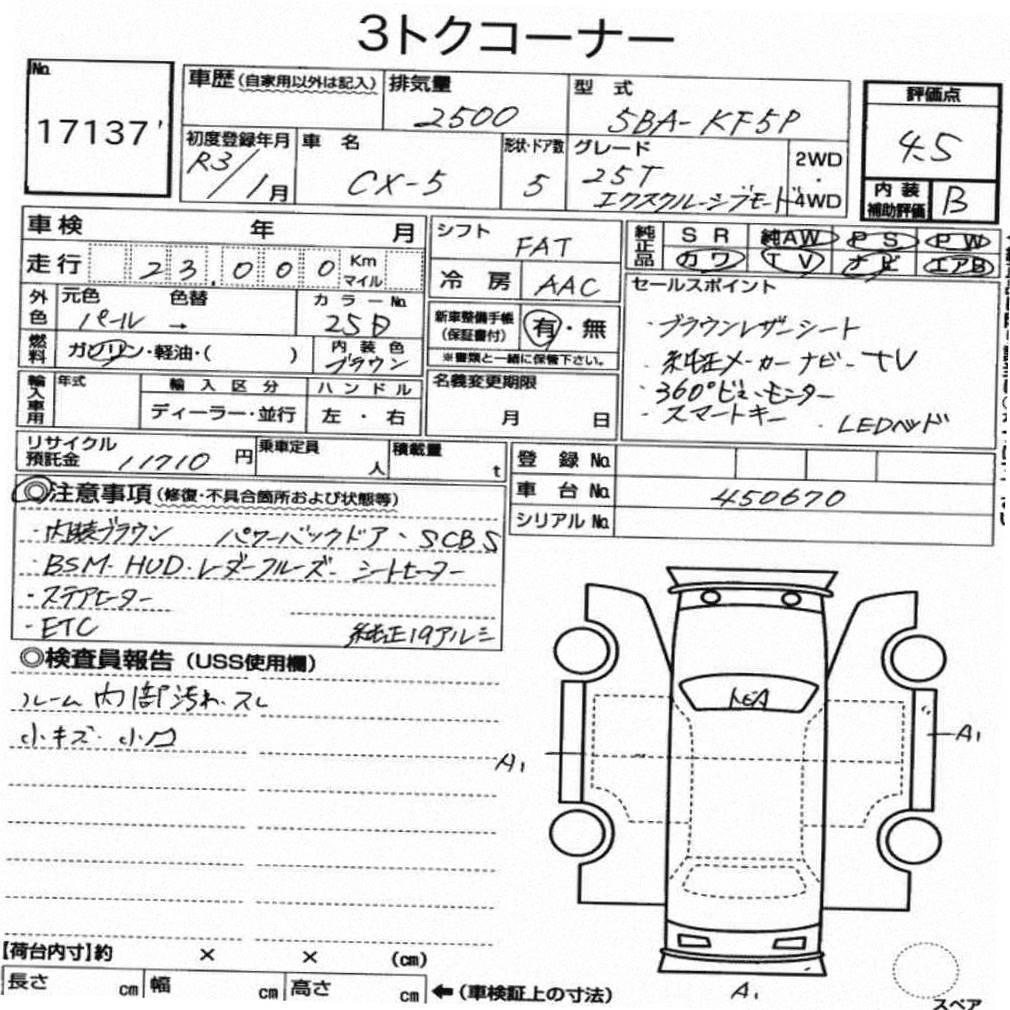 3トクコーナー
No. 17137
車歴 (自家用以外は記入) 排気量 2500 型式 5BA-KF5P 評価点 4.5
初度登録年月 R3/1月 車名 CX-5 形状・ドア数 5 グレード 25T エクスクルーシブモード 2WD・4WD 内装補助評価 B
車検 年 月 シフト FAT 純正品 SR 純AW PS PW
走行 23,000 Km マイル 冷房 AAC カワ TV ナビ エアB
外色 元色 パール 色替 → カラーNo. 25D
新車整備手帳 (保証書付) 有・無
※書類と一緒に保管下さい。
燃料 ガソリン・軽油・( ) 内装色 ブラウン
セールスポイント
・ブラウンレザーシート
・純正メーカーナビ・TV
・360°ビューモニター
・スマートキー ・LEDヘッド
輸入車用 年式 輸入区分 ディーラー・並行 ハンドル 左・右
名義変更期限 月 日
リサイクル預託金 11710円 乗車定員 人 積載量 t
登録No.
車台No. 450670
シリアルNo.
◎注意事項 (修復・不具合箇所および状態等)
・内装ブラウン パワーバックドア・SCBS
・BSM・HUD・レーダークルーズ・シートヒーター
・ステアヒーター
・ETC 純正19アルミ
◎検査員報告 (USS使用欄)
ルーム内部汚れ・スレ
小キズ・小凹
A1
A1
A1
【荷台内寸】約 × × (cm)
長さ cm 幅 cm 高さ cm ←(車検証上の寸法)
スペア